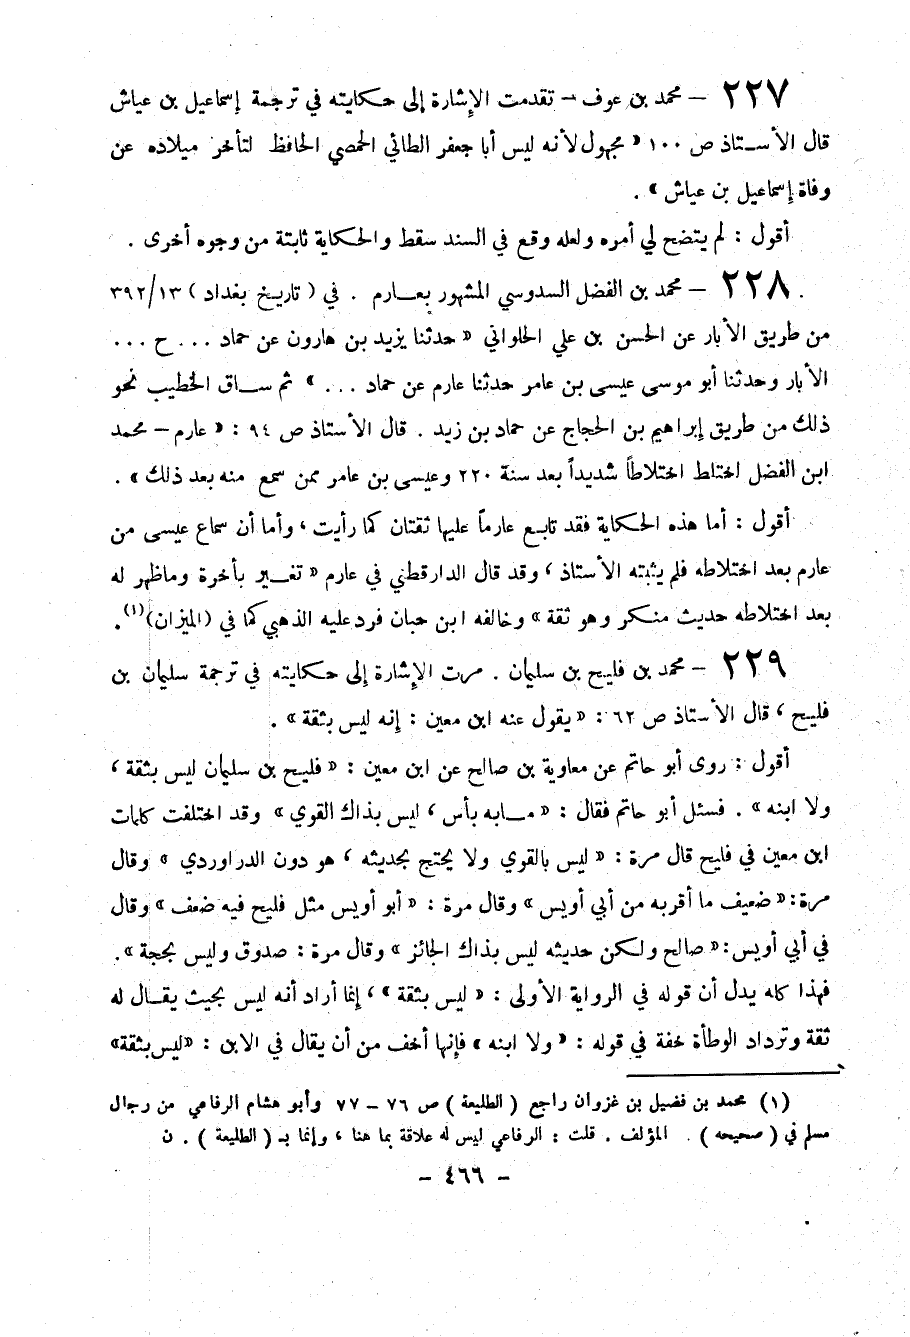 ٢٢٧ – محمد بن عوف – تقدمت الإشارة إلى حكايته في ترجمة إسماعيل بن عياش
قال الأستاذ ص ١٠٠ « مجهول لأنه ليس أبا جعفر الطائي الحمصي الحافظ لتأخر ميلاده عن
وفاة إسماعيل بن عياش » .
أقول : لم يتضح لي أمره ولعله وقع في السند سقط والحكاية ثابتة من وجوه أخرى .
٢٢٨ – محمد بن الفضل السدوسي المشهور بعارم . في ( تاريخ بغداد ) ٣٩٢/١٣
من طريق الأبار عن الحسن بن علي الحلواني « حدثنا يزيد بن هارون عن حماد ... ح ...
الأبار وحدثنا أبو موسى عيسى بن عامر حدثنا عارم عن حماد ... » ثم ساق الخطيب نحو
ذلك من طريق إبراهيم بن الحجاج عن حماد بن زيد . قال الأستاذ ص ٩٤ : « عارم – محمد
ابن الفضل اختلط اختلاطاً شديداً بعد سنة ٢٢٠ وعيسى بن عامر ممن سمع منه بعد ذلك » .
أقول : أما هذه الحكاية فقد تابع عارماً عليها ثقتان كما رأيت ، وأما أن سماع عيسى من
عارم بعد اختلاطه فلم يثبته الأستاذ ، وقد قال الدارقطني في عارم « تغير بأخرة وماظهر له
بعد اختلاطه حديث منكر وهو ثقة » وخالفه ابن حبان فرد عليه الذهبي كما في (الميزان)(١).
٢٢٩ – محمد بن فليح بن سليمان . مرت الإشارة إلى حكايته في ترجمة سليمان بن
فليح ، قال الأستاذ ص ٦٢ : « يقول عنه ابن معين : إنه ليس بثقة » .
أقول : روى أبو حاتم عن معاوية بن صالح عن ابن معين : « فليح بن سليمان ليس بثقة ،
ولا ابنه » . فسئل أبو حاتم فقال : « مابه بأس ، ليس بذاك القوي » وقد اختلفت كلمات
ابن معين في فليح قال مرة : « ليس بالقوي ولا يحتج بحديثه ، هو دون الدراوردي » وقال
مرة : « ضعيف ما أقربه من أبي أويس » وقال مرة : « أبو أويس مثل فليح فيه ضعف » وقال
في أبي أويس : « صالح ولكن حديثه ليس بذاك الجائز » وقال مرة : صدوق وليس بحجة » .
فهذا كله يدل أن قوله في الرواية الأولى : « ليس بثقة » ، إنما أراد أنه ليس بحيث يقال له
ثقة وتزداد الوطأة خفة في قوله : « ولا ابنه » فإنها أخف من أن يقال في الابن : «ليس بثقة»
(١) محمد بن فضيل بن غزوان راجع ( الطليعة ) ص ٧٦ – ٧٧ وأبو هشام الرفاعي من رجال
مسلم في ( صحيحه ) . المؤلف . قلت : الرفاعي ليس له علاقة بما هنا ، وإنما بـ ( الطليعة ) . ن
– ٤٦٦ –